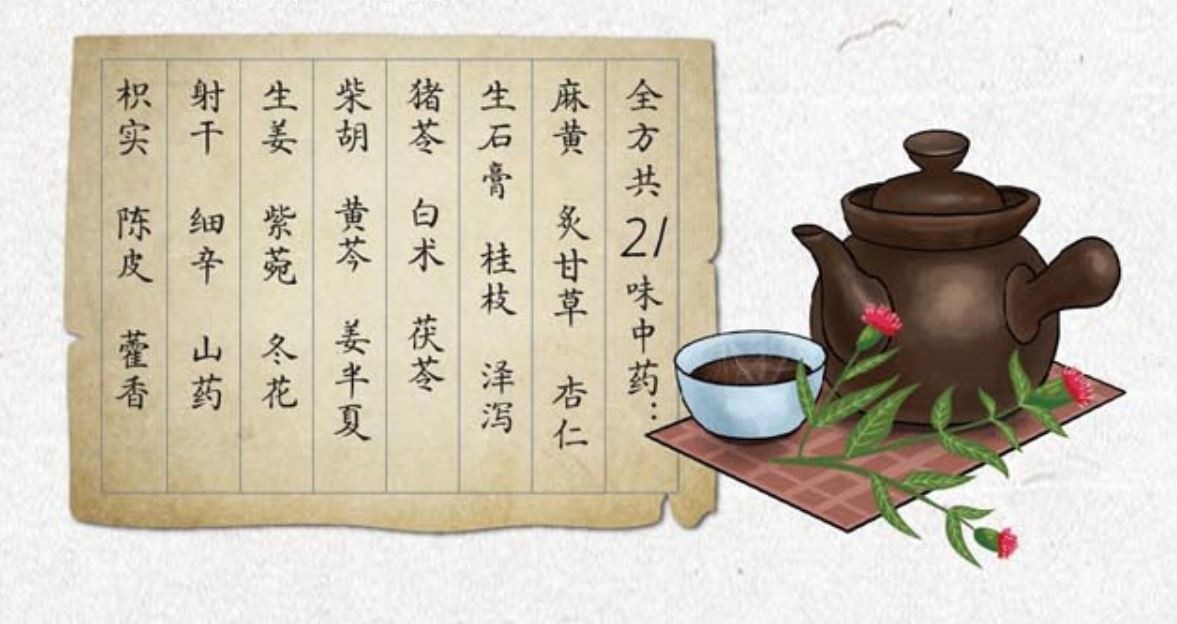 全方共21味中药…
麻黄 炙甘草 杏仁
生石膏 桂枝 泽泻
猪苓 白术 茯苓
柴胡 黄芩 姜半夏
生姜 紫菀 冬花
射干 细辛 山药
枳实 陈皮 藿香